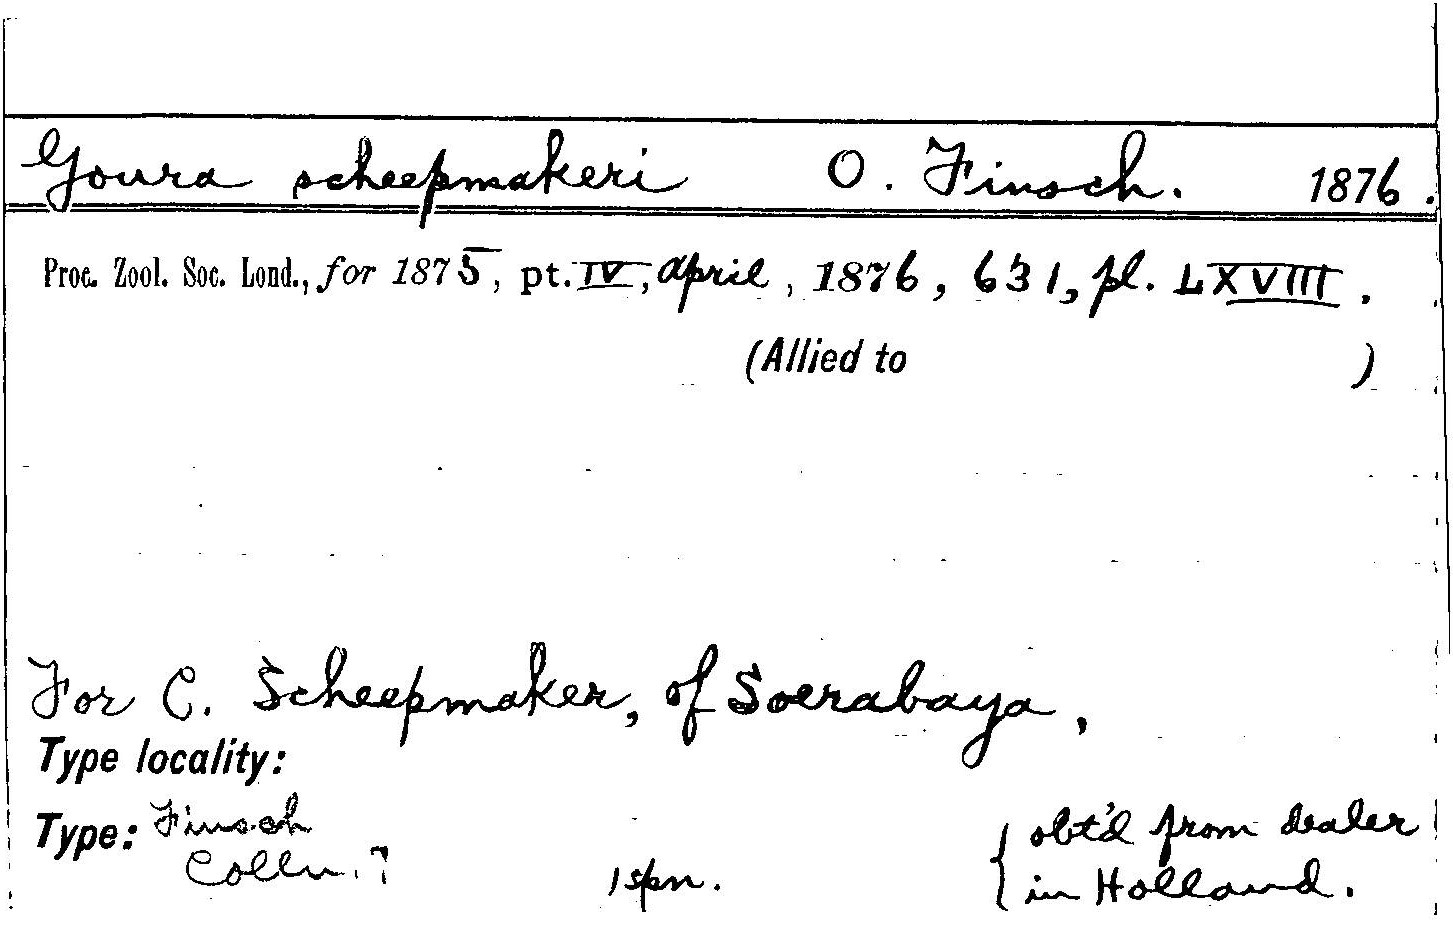 Goura scheepmakeri O. Finsch. 1876.
Proc. Zool. Soc. Lond., for 1875, pt. IV, april, 1876, 631, pl. LXVIII.
(Allied to )
For C. Scheepmaker, of Soerabaya,
Type locality:
Type: Finsch
Colln. ? 1 spn.
{ obt'd from dealer
in Holland.